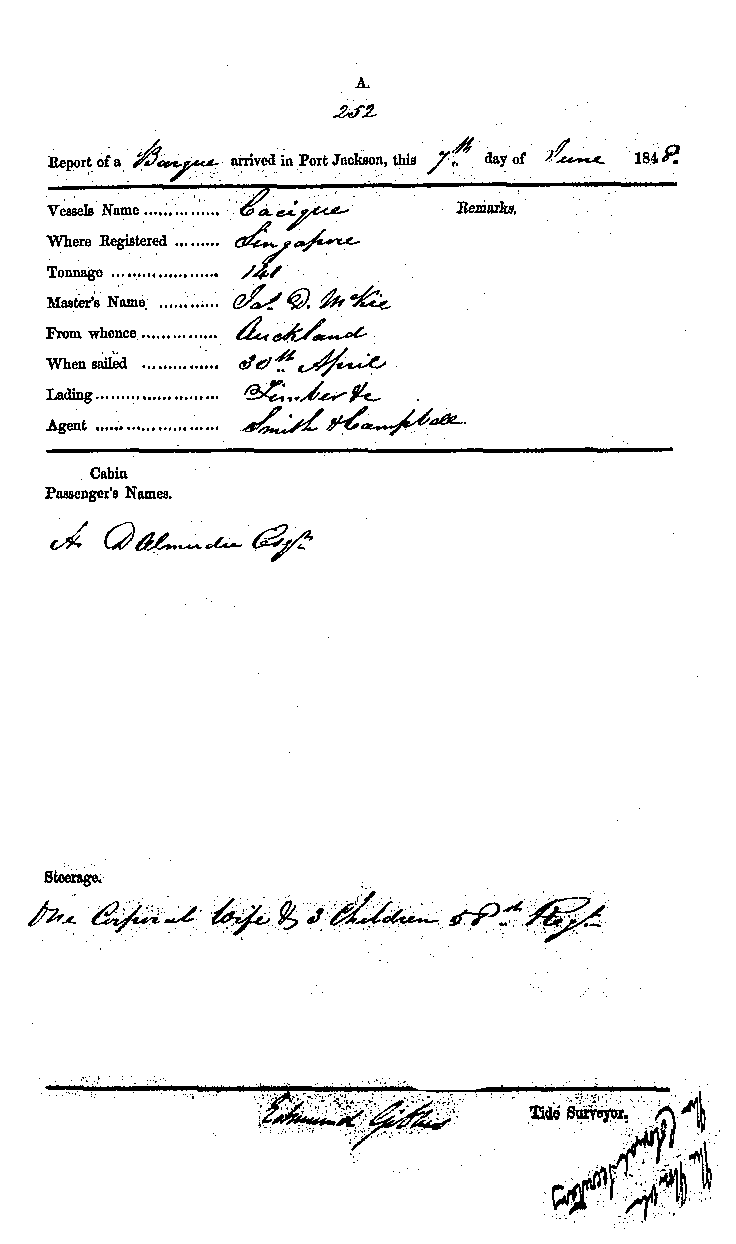 A.
252
Report of a Barque arrived in Port Jackson, this 7th day of June 1848.
Vessels Name ............... Cacique
Remarks.
Where Registered ......... Singapore
Tonnage ..................... 141
Master's Name ............ Jas. D. McKie
From whence ............... Auckland
When sailed ............... 30th April
Lading ........................ Timber &c
Agent ........................ Smith & Campbell
Cabin
Passenger's Names.
A. DAlmerdie Esqr.
Steerage.
One Corporal Wife & 3 Children 58th Regt.
Edmund Gibbes
Tide Surveyor.
The Honble
The Colonial Secretary